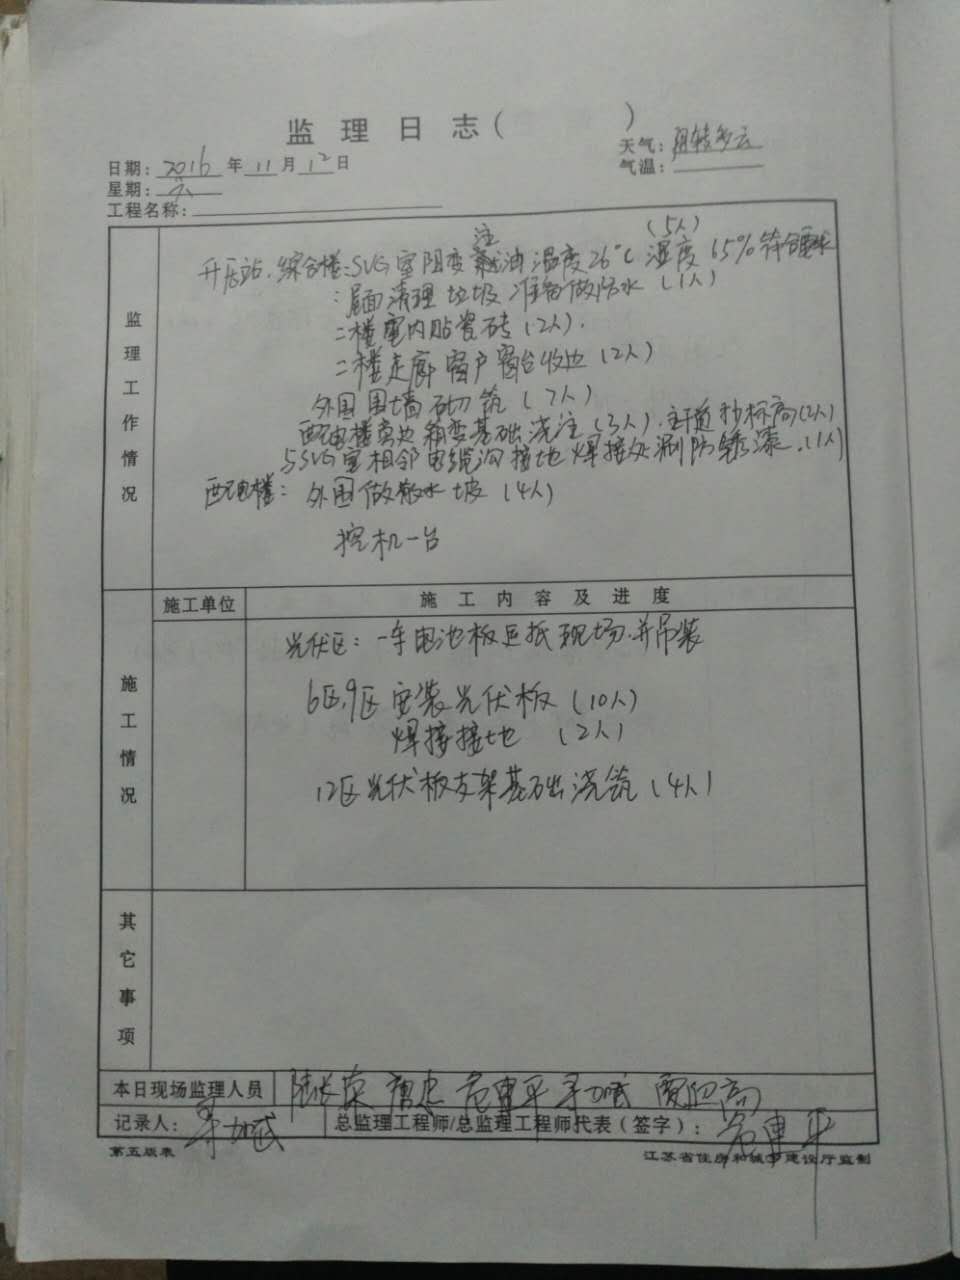 监理日志( )
日期: 2016 年 11 月 12 日
天气: 阴转多云
星期: 六
气温:
工程名称:
监理工作情况
注 (5人)
开压站、综合楼:SVG室阻变油温度26℃ 湿度65%符合要求
:屋面清理垃圾 准备做防水(1人)
二楼室内贴瓷砖(2人).
二楼走廊窗户窗台收边(2人)
外围围墙砌筑(7人)
配电楼旁边箱变基础浇注(3人).抄标高(2人)
与SVG室相邻电缆沟接地焊接处刷防锈漆.(1人)
配电楼:外围做散水坡(4人)
挖机一台
施工情况
施工单位 施工内容及进度
光伏区:一车电池板已抵现场.并吊装
6区,9区安装光伏板(10人)
焊接接地(2人)
12区光伏板支架基础浇筑(4人)
其它事项
本日现场监理人员
记录人: 总监理工程师/总监理工程师代表(签字):
第五版表 江苏省住房和城乡建设厅监制